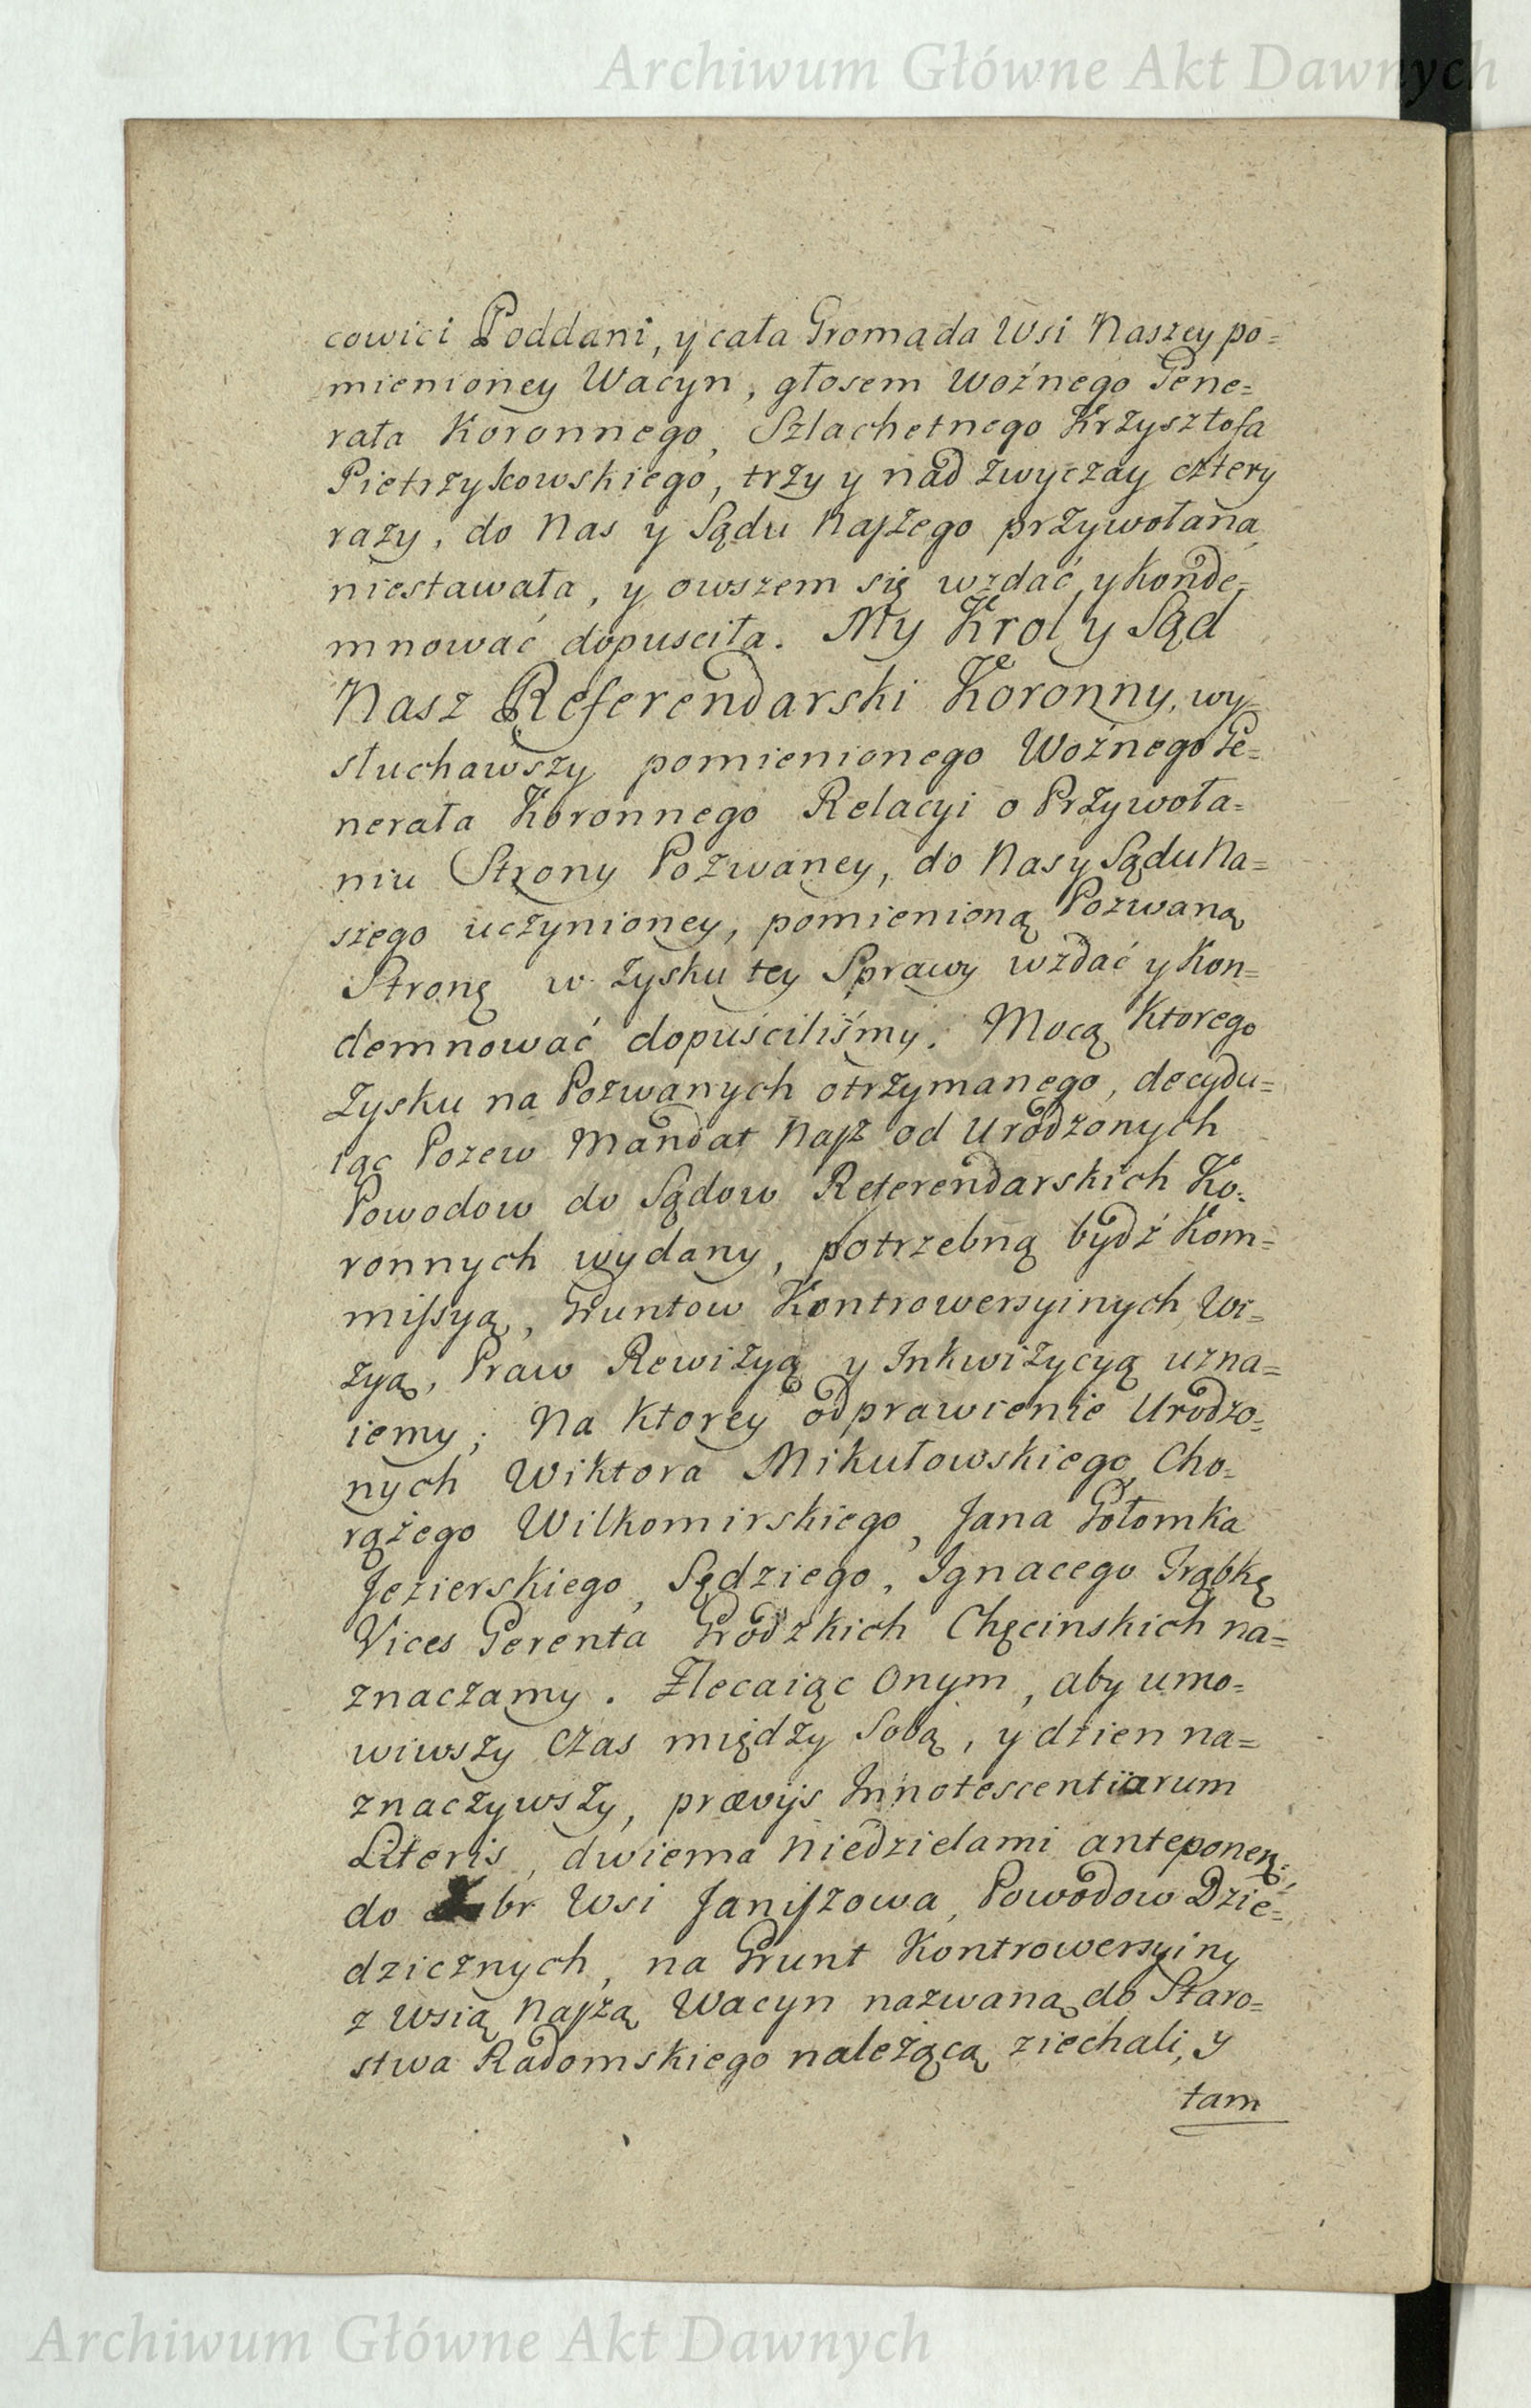 Archiwum Główne Akt Dawnych
cowici Poddani, y cała Gromada Wsi Naszey po=
mienioney Wacyn, głosem Woźnego Gene=
rała Koronnego, Szlachetnego Krzysztofa
Pietrzykowskiego, trzy y nad zwyczay cztery
razy, do Nas y Sądu Naszego przywołana
niestawała, y owszem się wzdać y konde=
mnować dopusciła. My Krol y Sąd
Nasz Referendarski Koronny, wy=
słuchawszy pomienionego Woźnego Ge=
nerała Koronnego Relacyi o Przywoła=
niu Strony Pozwaney, do Nas y Sądu Na=
szego uczynioney, pomienioną Pozwaną
Stronę w zysku tey Sprawy wzdać y Kon=
demnować dopuściliśmy. Mocą ktorego
zysku na Pozwanych otrzymanego, decydu=
iąc Pozew Mandat Nasz od Urodzonych
Powodow do Sądow Referendarskich Ko=
ronnych wydany, potrzebną bydź Kom=
missyą, Gruntow Kontrowersyinych Wi=
zyą, Praw Rewizyą y Inkwizycyą uzna=
iemy; Na ktorey odprawienie Urodzo=
nych Wiktora Mikułowskiego Cho=
rążego Wilkomirskiego, Jana Gołomka
Jezierskiego, Sędziego, Ignacego Trąbkę
Vices Gerenta Grodzkich Chęcinskich na=
znaczamy. Zlecaiąc Onym, aby umo=
wiwszy czas między Sobą, y dzien na=
znaczywszy, prævijs Innotescentiarum
Literis, dwiema Niedzielami anteponen:
do Dobr Wsi Janiszowa, Powodow Dzie=
dzicznych, na Grunt Kontrowersyiny
z Wsią Naszą Wacyn nazwaną do Staro=
stwa Radomskiego należącą ziechali, y
tam
Archiwum Główne Akt Dawnych